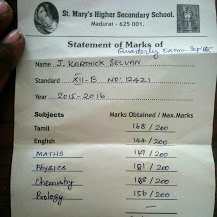 St. Mary's Higher Secondary School.
Madurai - 625 001.
Statement of Marks of
Quarterly Exam - Sep 2015
Name - J. KARTHICK SELVAN
Standard XII-B NO: 12421
Year 2015-2016
Subjects Marks Obtained / Max.Marks
Tamil 168 / 200
English 144 / 200
MATHS 149 / 200
Physics 181 / 200
Chemistry 188 / 200
Biology 156 / 200